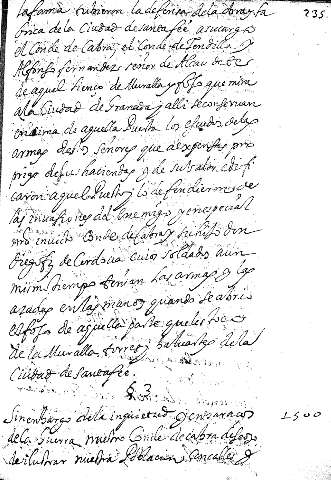 235
la fama tubieron la defensa de la bra
brica de la Ciudad de santa feé a su cargo
el Conde de Cabra, el Conde de Tendilla, y
Alfonso fernandez señor de Alcau
de aquel lienço de Muralla, y foso que mira
a la Ciudad de Granada y alli se conseruan
en sima de aquella Puerta los escudos de las
armas destos señores que a expensas pro
prias de sus haciendas y de su valor edifi
caron aquel Puesto, y lo defendieron de
las inuasiones del Enemigo, y en especial
nro inuicto Conde de Cabra, y su hijo Don
Diego frz de Cordoua cuios soldados a un
mismo tiempo tenian las armas, y las
azadas en las manos quando se abrio
el foso de aquella parte que les toco
de la Muralla torres, y baluartes de la
Ciudad de Santa fee.
§ 3
Sin embargo de la inquietud y embaraços 1500
de la Guerra nuestro Conde de Cabra deseoso
de ilustrar nuestra Poblacion, con calles y